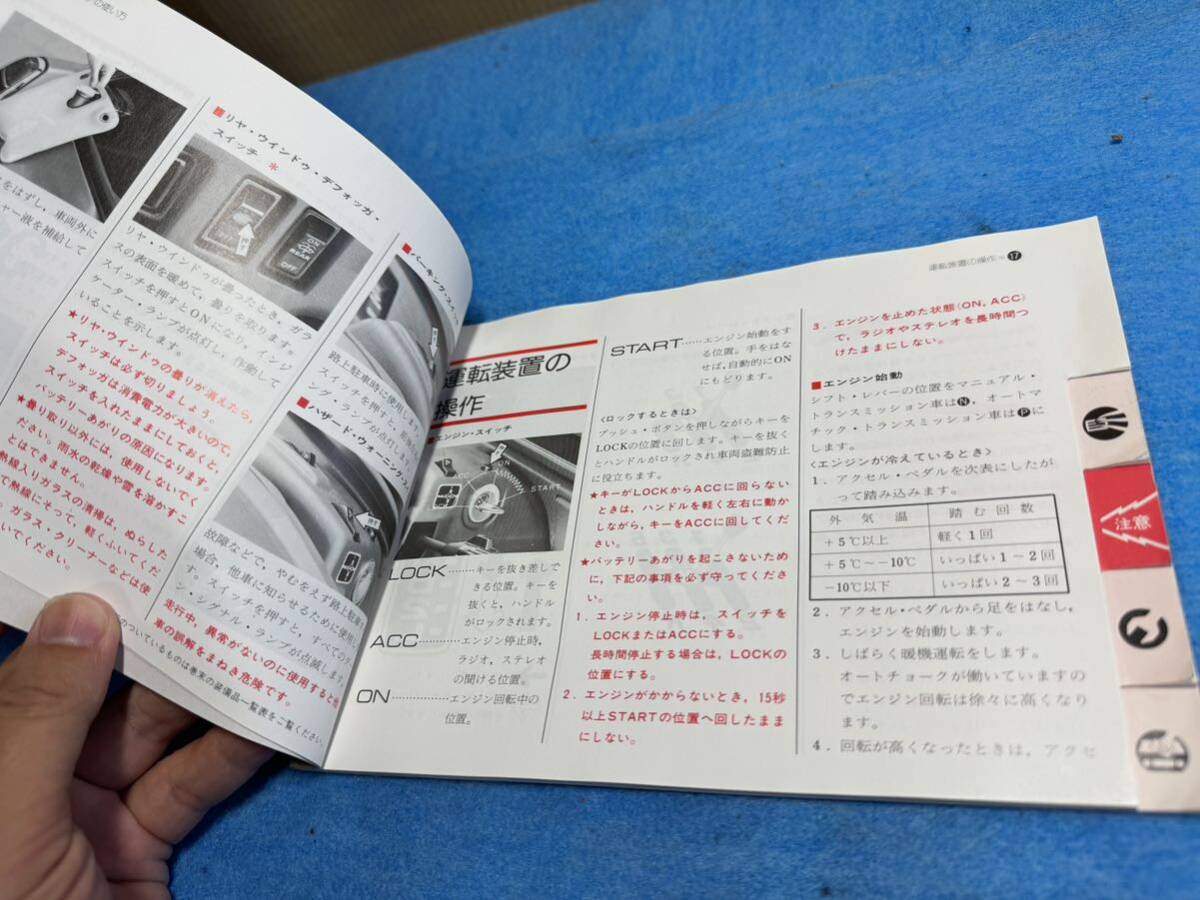 の使い方
をはずし，車両外に
ャー液を補給して
■リヤ・ウインドゥ・デフォッガ・
スイッチ ＊
押す
ON
REAR
OFF
リヤ・ウインドゥが曇ったとき，ガラ
スの表面を暖めて，曇りを取ります。
スイッチを押すとONになり，インジ
ケーター・ランプが点灯し，作動して
いることを示します。
★リヤ・ウインドゥの曇りが消えたら，
スイッチは必ず切りましょう。
デフォッガは消費電力が大きいので，
スイッチを入れたままにしておくと，
バッテリーあがりの原因になります。
★曇り取り以外には，使用しないでく
ださい。雨水の乾燥や雪を溶かすこ
とはできません。
熱線入りガラスの清掃は，ぬらした
で熱線にそって，軽くふいてくだ
。ガラス・クリーナーなどは使
いでください。
■パーキング・ス
路上駐車時に使用しま
スイッチを押すと，前後の
シグ・ランプが点灯
■ハザード・ウォーニング・ス
押す
故障などで，やむをえず路上駐車す
場合，他車に知らせるために使用し
す。スイッチを押すと，すべてのタ
ン・シグナル・ランプが点滅します
走行中，異常がないのに使用すると他
車の誤解をまねき危険です。
のついているものは巻末の装備品一覧表をご覧ください。
運転装置の操作 17
運転装置の
操作
■エンジン・スイッチ
ON
START
LOCK……キーを抜き差しで
きる位置。キーを
抜くと，ハンドル
がロックされます。
ACC………エンジン停止時，
ラジオ，ステレオ
の聞ける位置。
ON…………エンジン回転中の
位置。
START……エンジン始動をす
る位置。手をはな
せば，自動的にON
にもどります。
〈ロックするときは〉
プッシュ・ボタンを押しながらキーを
LOCKの位置に回します。キーを抜く
とハンドルがロックされ車両盗難防止
に役立ちます。
★キーがLOCKからACCに回らない
ときは，ハンドルを軽く左右に動か
しながら，キーをACCに回してくだ
さい。
★バッテリーあがりを起こさないため
に，下記の事項を必ず守ってくださ
い。
1．エンジン停止時は，スイッチを
LOCKまたはACCにする。
長時間停止する場合は，LOCKの
位置にする。
2．エンジンがかからないとき，15秒
以上STARTの位置へ回したまま
にしない。
3．エンジンを止めた状態(ON，ACC)
で，ラジオやステレオを長時間つ
けたままにしない。
■エンジン始動
シフト・レバーの位置をマニュアル・
トランスミッション車はN，オートマ
チック・トランスミッション車はPに
します。
〈エンジンが冷えているとき〉
1．アクセル・ペダルを次表にしたが
って踏み込みます。
外気温 踏む回数
＋5℃以上 軽く1回
＋5℃～－10℃ いっぱい1～2回
－10℃以下 いっぱい2～3回
2．アクセル・ペダルから足をはなし，
エンジンを始動します。
3．しばらく暖機運転をします。
オートチョークが働いていますの
でエンジン回転は徐々に高くなり
ます。
4．回転が高くなったときは，アクセ
注意